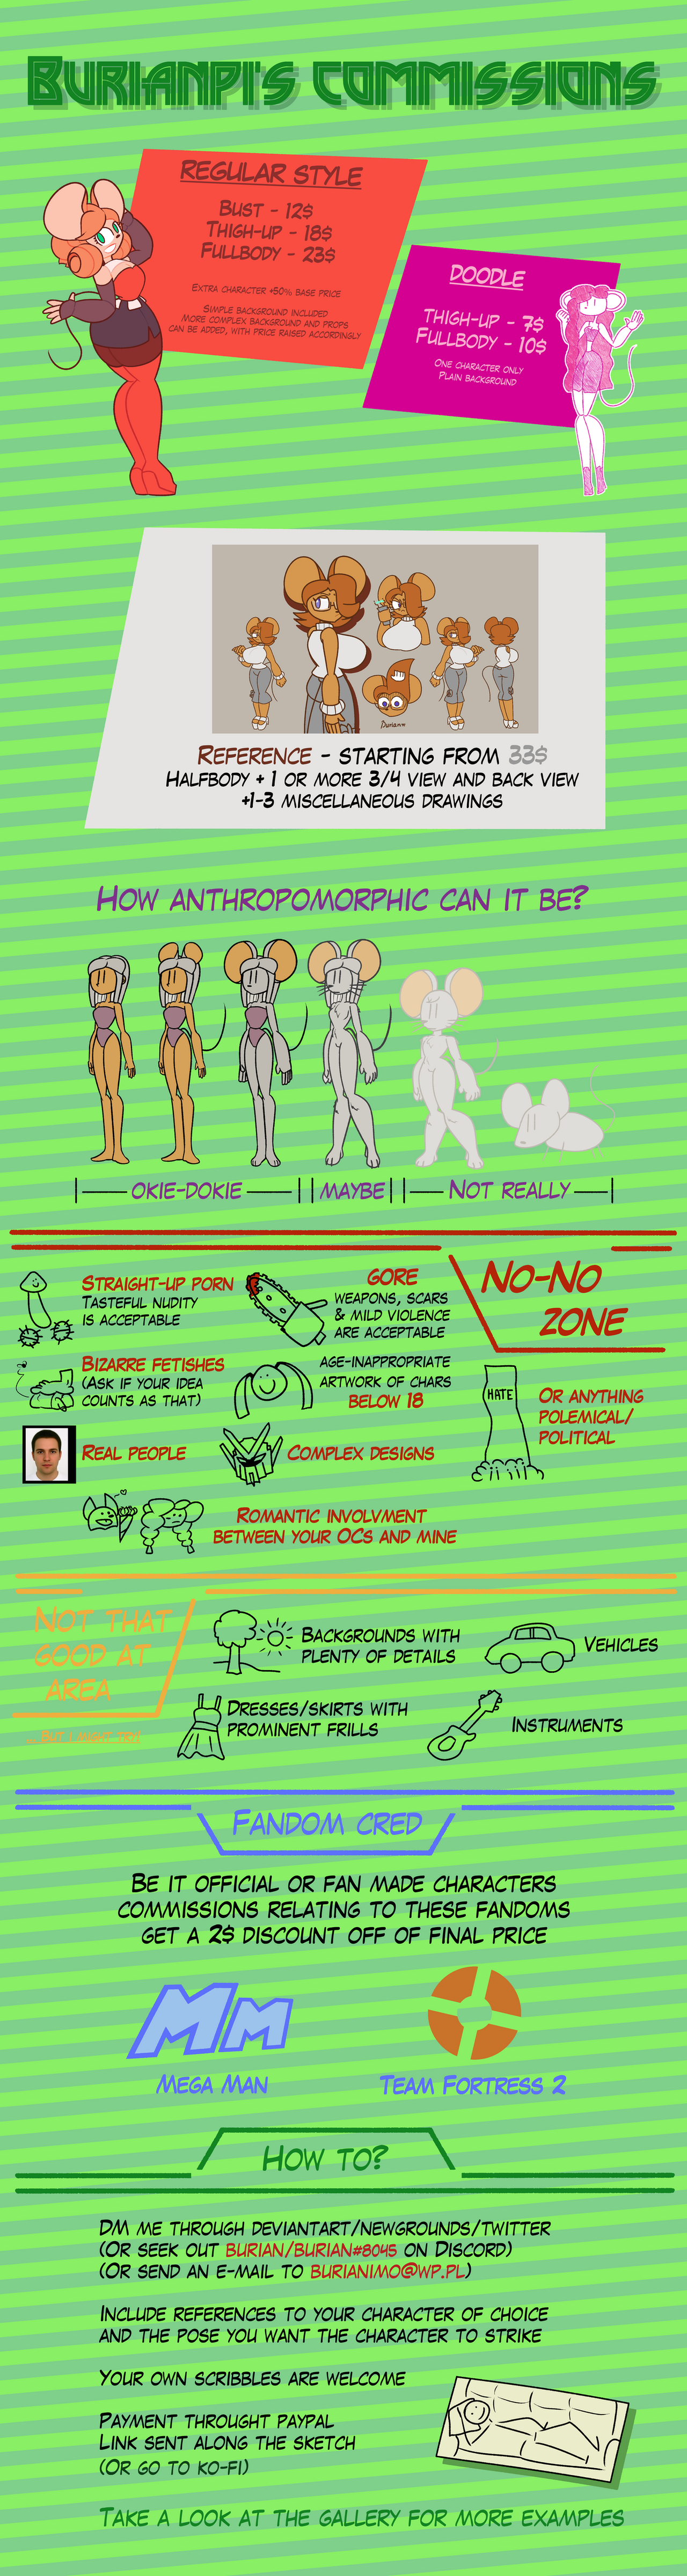 Burianpi's commissions
Regular style
Bust - 12$
Thigh-up - 18$
Fullbody - 23$
Extra character +50% base price
Simple background included
More complex background and props
can be added, with price raised accordingly
Doodle
Thigh-up - 7$
Fullbody - 10$
One character only
Plain background
Burianw
Reference - starting from 33$
Halfbody + 1 or more 3/4 view and back view
+1-3 miscellaneous drawings
How anthropomorphic can it be?
okie-dokie
maybe
Not really
No-no
zone
Straight-up porn
Tasteful nudity
is acceptable
Gore
weapons, scars
& mild violence
are acceptable
Bizarre fetishes
(Ask if your idea
counts as that)
age-inappropriate
artwork of chars
below 18
Hate
Or anything
polemical/
political
Real people
Complex designs
Romantic involvment
between your OCs and mine
Not that
good at
area
... but I might try
Backgrounds with
plenty of details
Vehicles
Dresses/skirts with
prominent frills
Instruments
Fandom cred
Be it official or fan made characters
commissions relating to these fandoms
get a 2$ discount off of final price
Mm
Mega Man
Team Fortress 2
How to?
DM me through deviantart/newgrounds/twitter
(Or seek out burian/burian#8045 on Discord)
(Or send an e-mail to burianimo@wp.pl)
Include references to your character of choice
and the pose you want the character to strike
Your own scribbles are welcome
Payment throught paypal
Link sent along the sketch
(Or go to ko-fi)
Take a look at the gallery for more examples